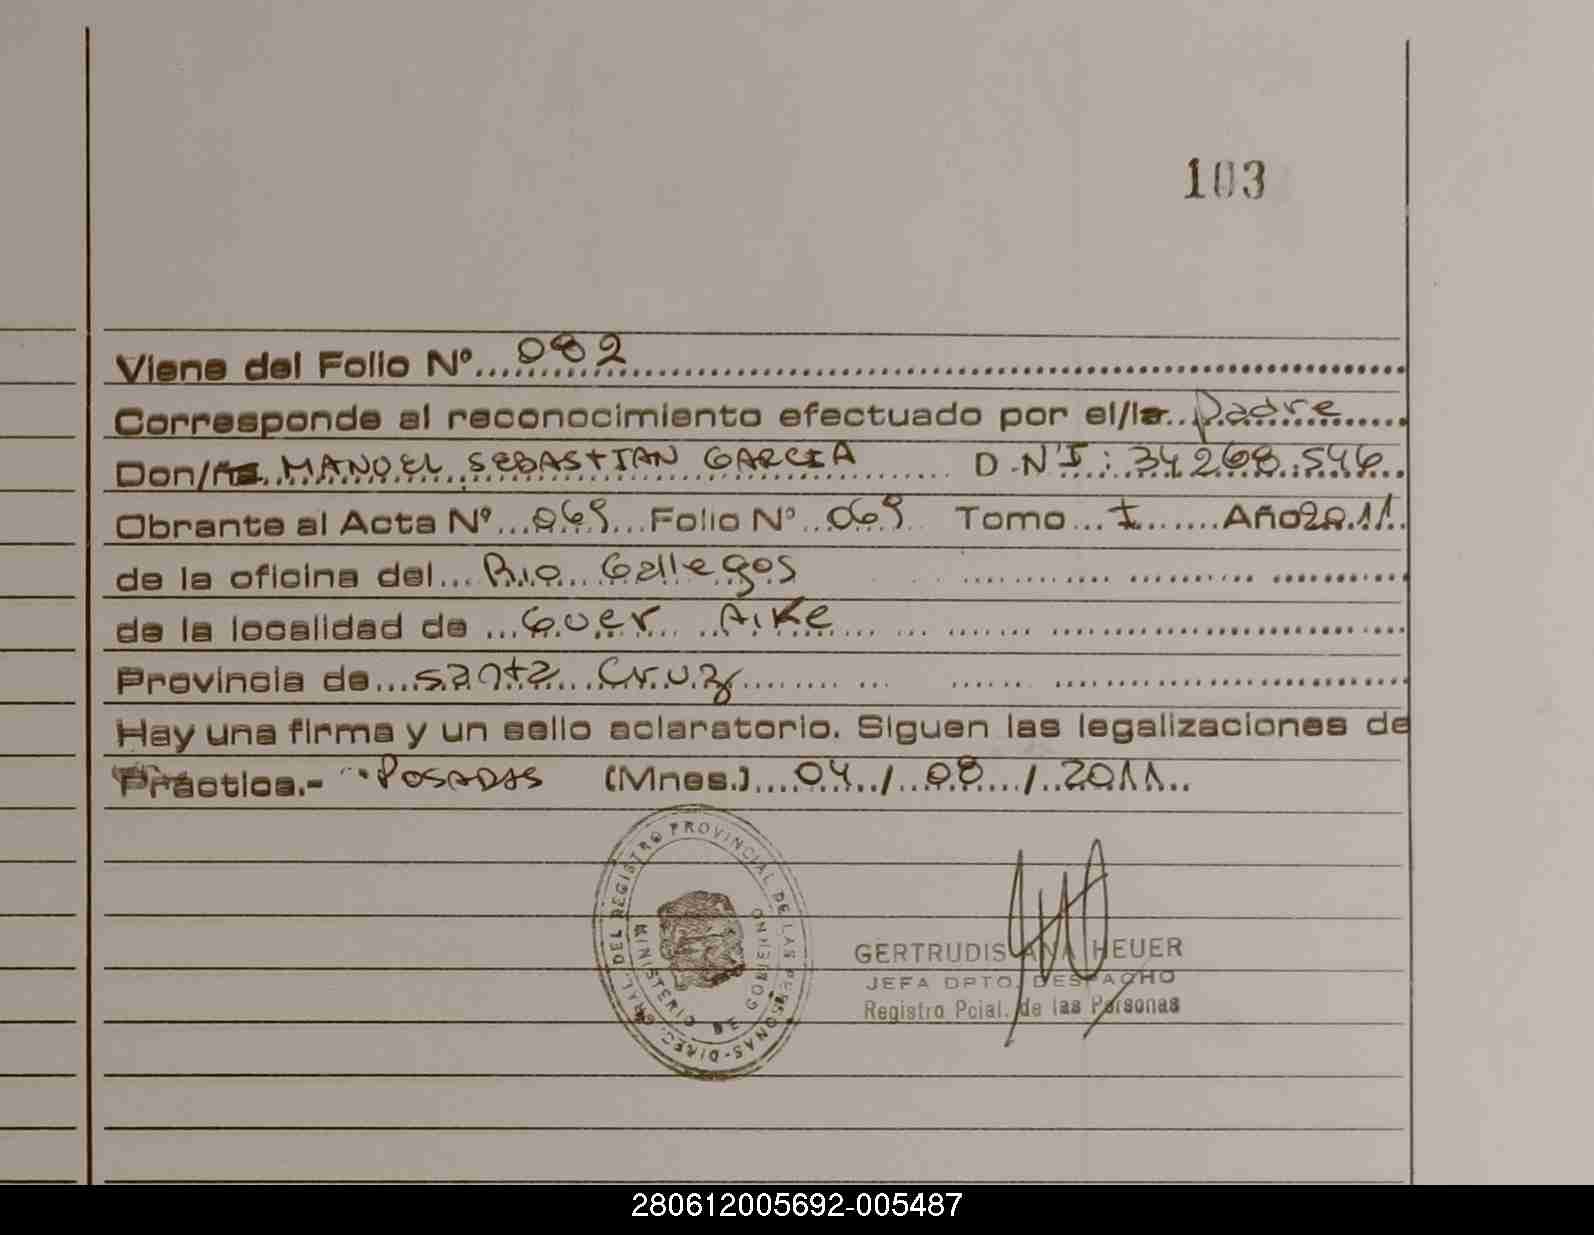 103
Viene del Folio Nº...082
Corresponde al reconocimiento efectuado por el/la..Padre
Don/ña. MANUEL SEBASTIAN GARCIA D.N.I: 34.268.546
Obrante al Acta Nº...069...Folio Nº..069 Tomo...I.......Año2011.
de la oficina del...Rio Gallegos
de la localidad de ...Guer Aike
Provincia de....Santa Cruz
Hay una firma y un sello aclaratorio. Siguen las legalizaciones de
Práctica.- POSADAS (Mnes.)....04../..08..../..2011..
DIREC. GRAL. DEL REGISTRO PROVINCIAL DE LAS PERSONAS-
MINISTERIO DE GOBIERNO
GERTRUDIS ANA HEUER
JEFA DPTO. DESPACHO
Registro Pcial. de las Personas
280612005692-005487